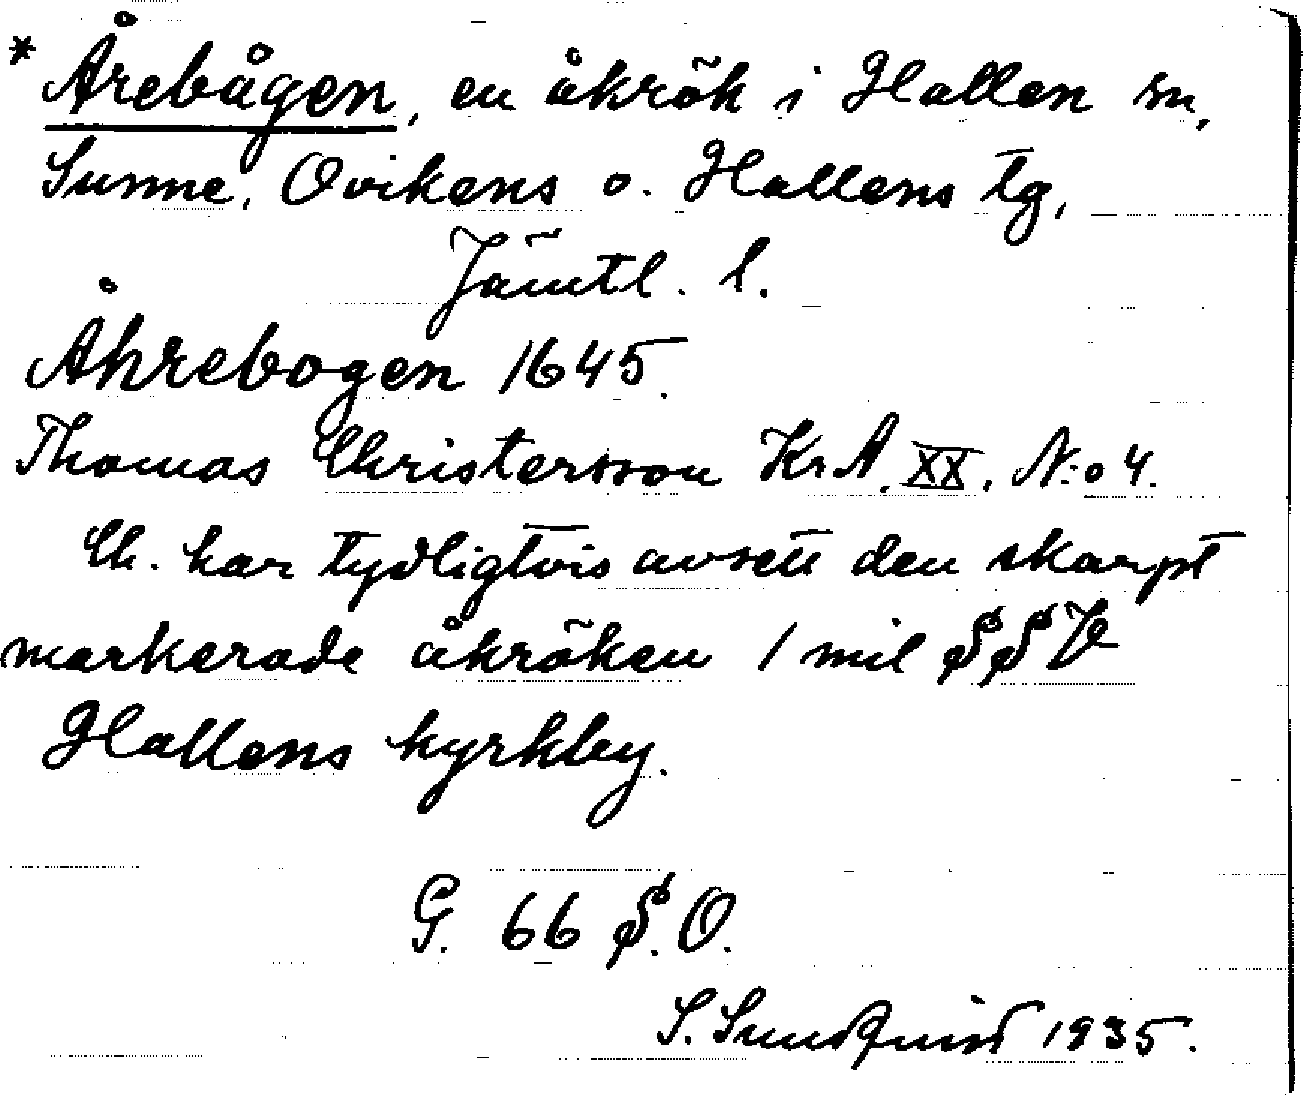 * Årebågen, en åkrök i Hallen sn,
Sunne, Ovikens o. Hallens tg,
Jämtl. l.
Åhrebogen 1645.
Thomas Christersson KrA. XX, N:o 4.
Ch. har tydligtvis avsett den skarpt
markerade åkröken 1 mil SSV
Hallens kyrkby.
G. 66 S.O.
S. Sundquist 1935.